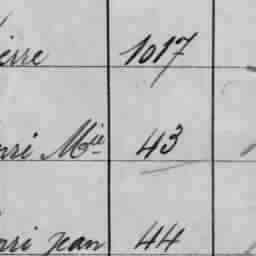 ierre 1017
nri Mie 43
nri Jean 44